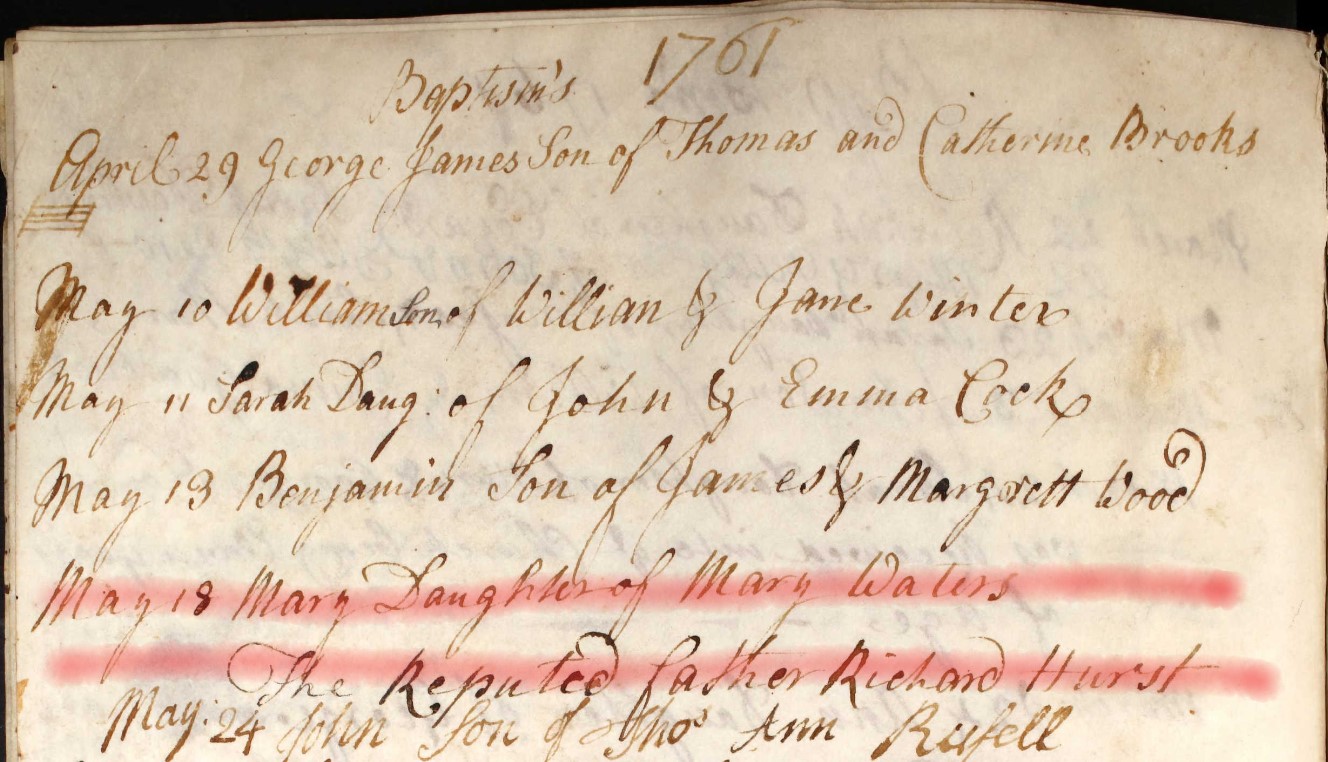 1761
Baptism's
April 29 George James Son of Thomas and Catherine Brooks
May 10 William Son of Willian & Jane Winter
May 11 Sarah Daug: of John & Emma Cock
May 13 Benjamin Son of James & Margrett Wood
May 18 Mary Daughter of Mary Waters
The Reputed father Richard Hurst
May: 24 John Son of Thos Ann Rufsell